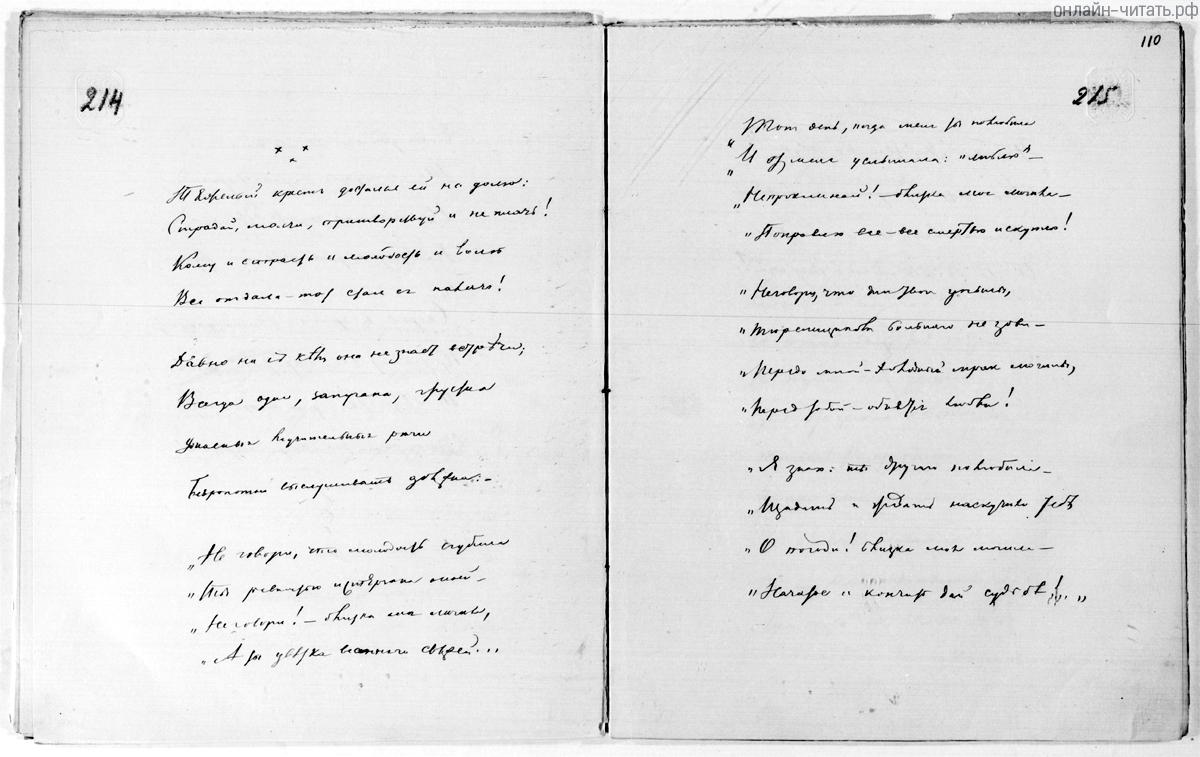 онлайн-читать.рф
110
214
Тяжелый крестъ достался ей на долю:
Страдай, молчи, притворствуй и не плачь!
Кому и страсть и молодость и волю
Все отдала – тот сталъ ея палачъ!
Давно ни съ кѣмъ она не знаетъ встрѣчи;
Всегда одна, запугана, грустна
Безропотно выслушивать должна: –
„Не говори, что молодость сгубила
„Ты ревностью истерзана моей –
„Не говори! – близка моя могила,
„А ты цвѣтка весенняго свѣжей...
215
„Тотъ день, когда меня ты полюбила
„И отъ меня услышала: „люблю“ –
„Не проклинай! – близка моя могила –
„Поправлю все – все смертью искуплю!
„Не говори, что дни твои унылы,
„Тюремщикомъ больнаго не зови –
„Передо мной – холодный мракъ могилы,
„Передъ тобой – объятія любви!
„Я знаю: ты другаго полюбила –
„Щадить и ждать наскучило тебѣ
„О погоди! близка моя могила –
„Начатое и кончить дай судьбѣ!..“